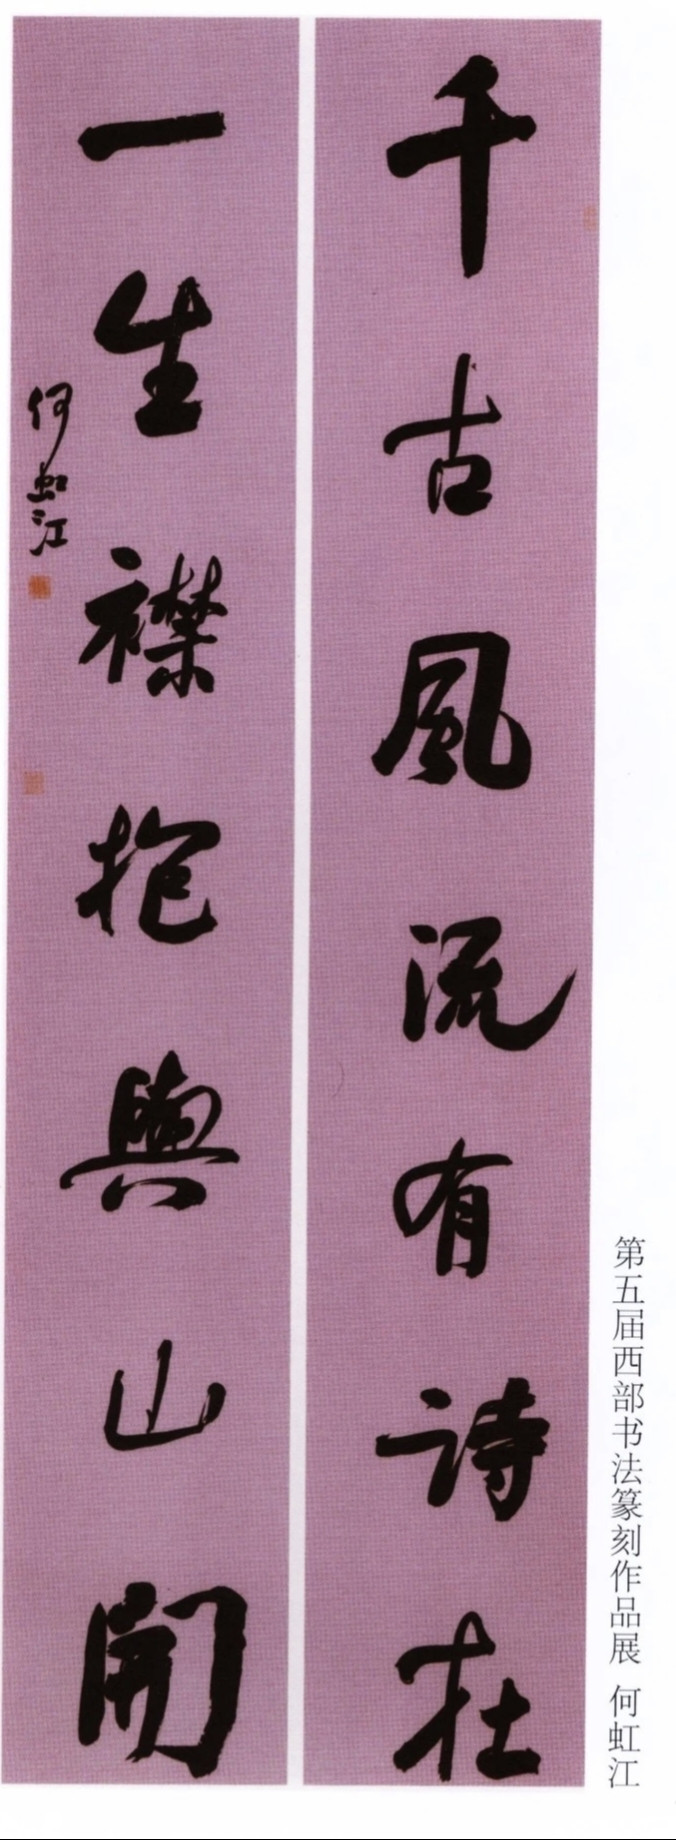 千古風流有詩在
一生襟抱與山開
何虹江
第五届西部书法篆刻作品展 何虹江